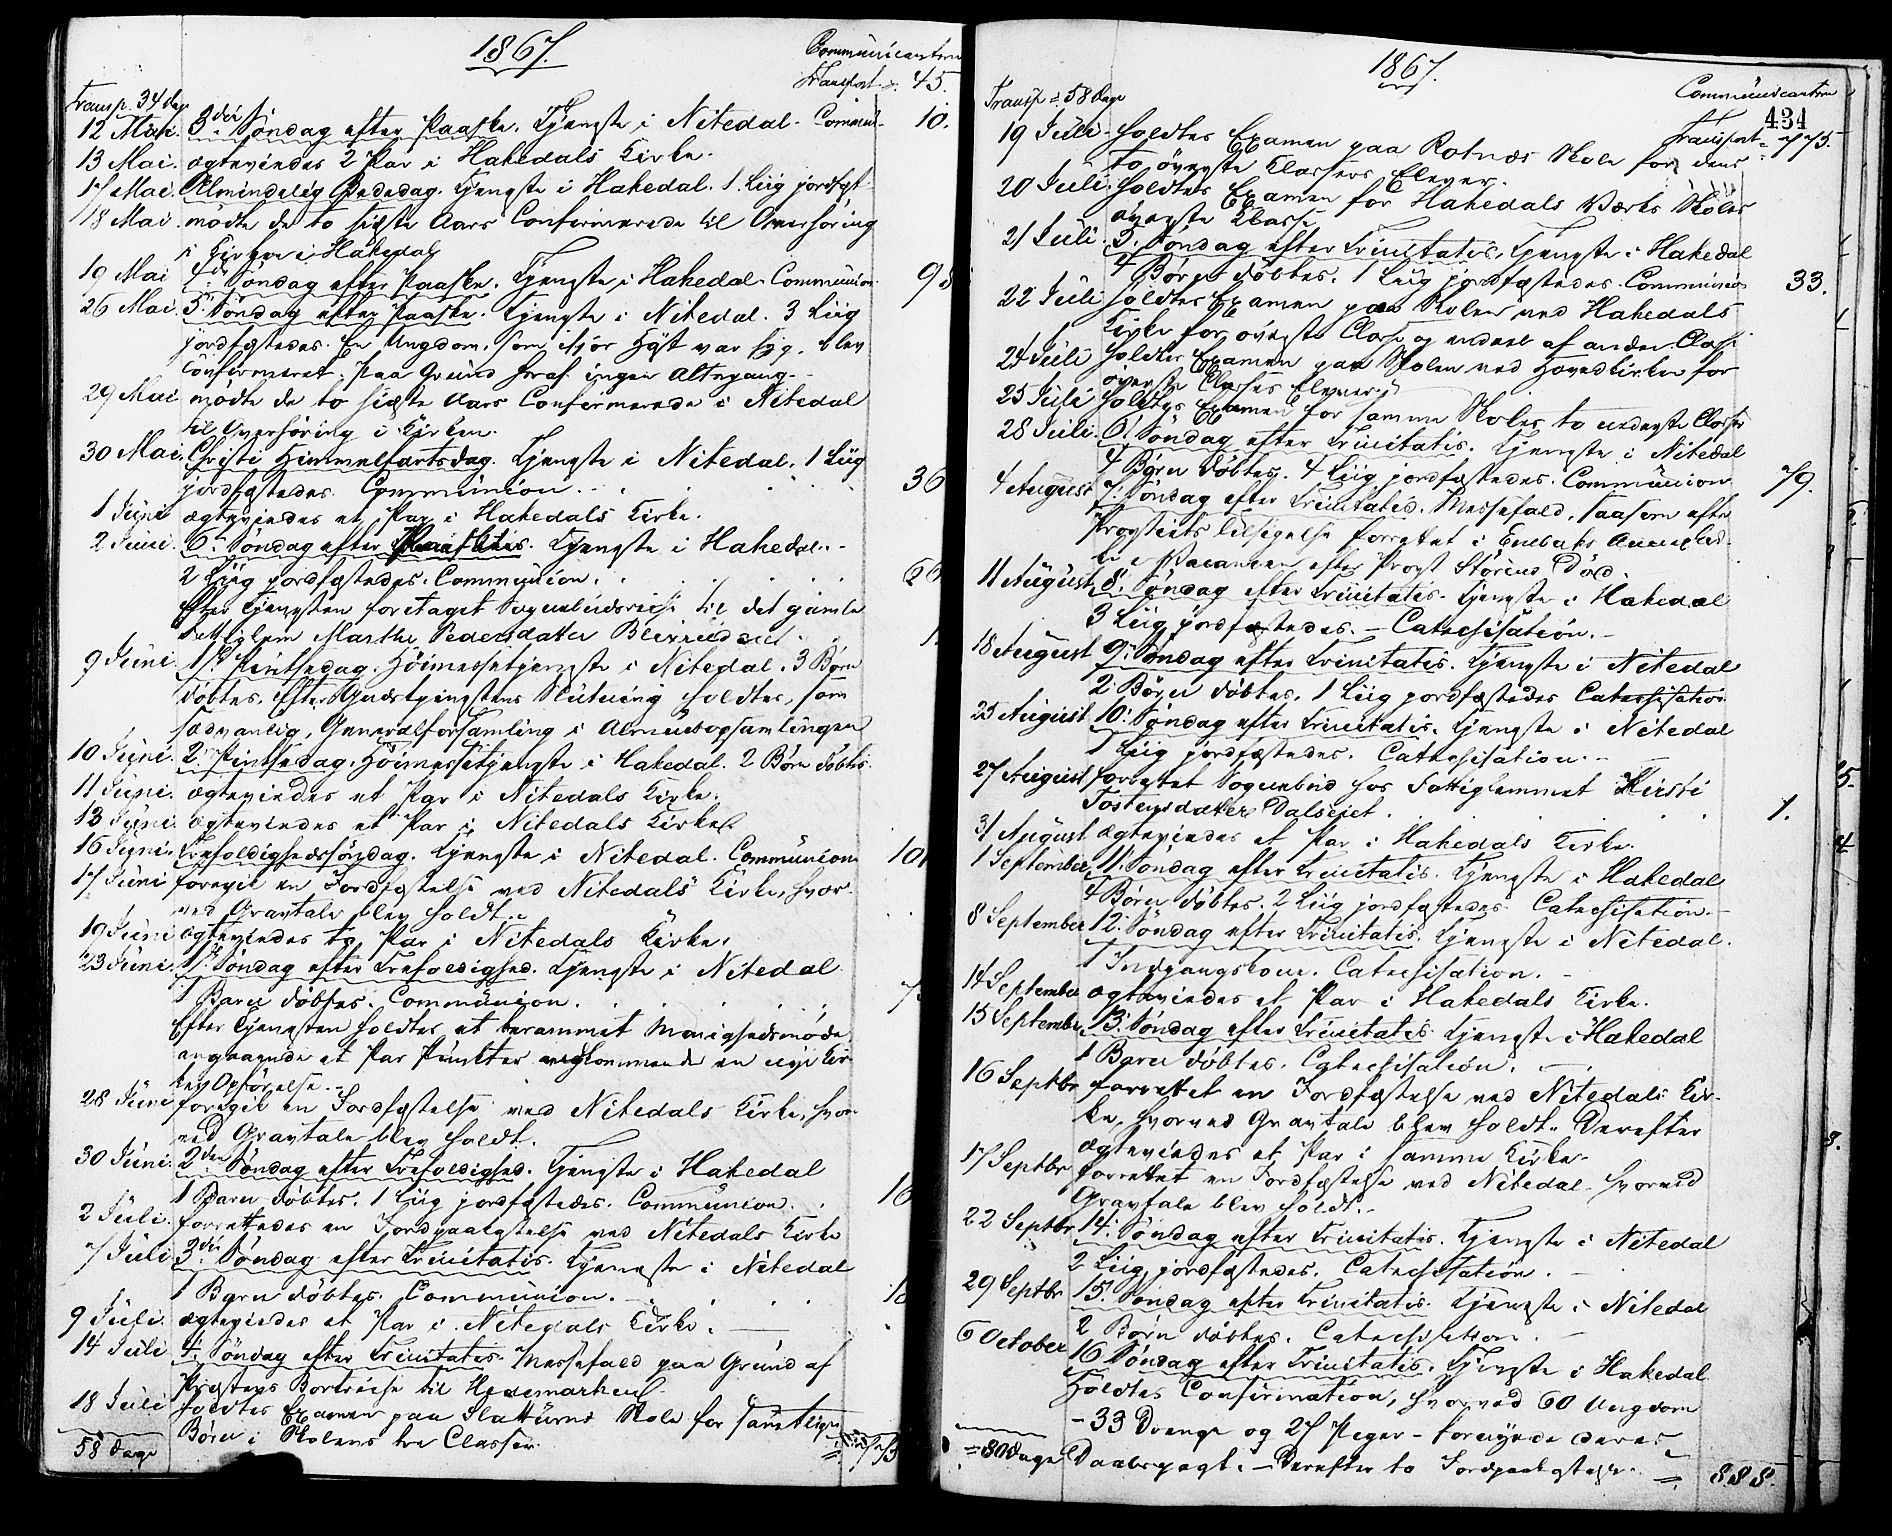 1867.
Communicanter
Transport = 45.
Transp. 34 dage
12 Mai. 3die Søndag efter Paaske. Tjeneste i Nitedal. Commun. 10.
13 Mai. ægteviedes 2 Par i Hakedals Kirke.
17 Mai. Almindelig Bededag. Tjeneste i Hakedal. 1 Liig jordfæst.
18 Mai. mødte de to sidste Aars Confirmerede til Overhøring
i Kirken i Hakedal
19 Mai 4de Søndag efter Paaske. Tjeneste i Hakedal. Communion 98
26 Mai. 5te Søndag efter Paaske. Tjeneste i Nitedal. 3 Liig
jordfæstedes. En Ungdom, som ifjor Høst var syg, blev
confirmeret. Paa Grund heraf ingen Altergang.
29 Mai mødte de to sidste Aars Confirmerede i Nitedal
til Overhøring i Kirken.
30 Mai. Christi Himmelfartsdag. Tjeneste i Nitedal. 1 Liig
jordfæstedes. Communion. 36
1 Juni ægteviedes et Par i Hakedals Kirke.
2 Juni. 6te Søndag efter Paaske. Tjeneste i Hakedal.
2 Liig jordfæstedes. Communion.
Efter Tjenesten foretaget Sognebudsreise til det gamle
Marthe Pedersdatter 1.
9 Juni. 1ste Pintsedag. Høimessetjeneste i Nitedal. 3 Børn
døbtes. Efter Gudstjenestens Slutning holdtes, som
sædvanlig, Generalforsamling i Almuebogsamlingen
10 Juni. 2. Pintsedag. Høimessetjeneste i Hakedal. 2 Børn døbtes.
11 Juni. ægteviedes et Par i Nitedals Kirke.
13 Juni. ægteviedes et Par i Nitedals Kirke.
16 Juni. Trefoldighedssøndag. Tjeneste i Nitedal. Communion 101
17 Juni foregik en Jordfæstelse ved Nitedals Kirke, hvor-
ved Gravtale blev holdt.
19 Juni ægteviedes to Par i Nitedals Kirke.
23 Juni. 1ste Søndag efter Trefoldighed. Tjeneste i Nitedal
1 Barn døbtes. Communion.
Efter Tjenesten holdtes et berammet Menighedsmøde
angaaende et Par Punkter vedkommende en nye Kir-
kes Opførelse.
28 Juni foregik en Jordfæstelse ved Nitedals Kirke, hvor-
ved Gravtale blev holdt.
30 Juni. 2den Søndag efter Trefoldighed. Tjeneste i Hakedal
1 Barn døbtes. 1 Liig jordfæstedes. Communion.
2 Juli. forrettedes en Jordpaakastelse ved Nitedals Kirke
7 Juli 3die Søndag efter Trinitatis. Tjeneste i Nitedal
1 Barn døbtes. Communion.
9 Juli. ægteviedes et Par i Nitedals Kirke.
14 Juli 4. Søndag efter Trinitatis. Messefald paa Grund af
Præstens Bortreise til Hedemarken.
18 Juli holdtes Examen paa Slattums Skole for samtlige
Børn i Skolens tre Classer.
58 Dage = 775
1867.
Communicanter
434
Transp = 58 Dage
Transport = 775.
19 Juli. holdtes Examen paa Rotnæs Skole for dens
to øverste Classers Elever.
20 Juli. holdtes Examen for Hakedals Værks Skoles
øverste Classe
21 Juli. 5. Søndag efter Trinitatis. Tjeneste i Hakedal
4 Børn døbtes. 1 Liig jordfæstedes. Communion 33.
22 Juli holdtes Examen paa Skolen ved Hakedals
Kirke for øverste Classe og endeel af anden Classe
24 Juli holdtes Examen paa Skolen ved Hovedkirken for
øverste Classes Elever.
25 Juli holdtes Examen for samme Skoles to nederste Classer
28 Juli. 6. Søndag efter Trinitatis. Tjeneste i Nitedal
4 Børn døbtes. 4 Liig jordfæstedes. Communion 79.
4 August 7. Søndag efter Trinitatis. Messefald, saasom efter
Provstiets Tilsigelse forrettet i Enebaks
i Vacancen efter Provst Størens Død.
11 August 8. Søndag efter Trinitatis. Tjeneste i Hakedal
3 Liig jordfæstedes. - Catechisation.
18 August 9. Søndag efter Trinitatis. Tjeneste i Nitedal
2 Børn døbtes. 1 Liig jordfæstedes Catechisation
25 August 10. Søndag efter Trinitatis. Tjeneste i Nitedal
1 Liig jordfæstedes. Catechisation.
27 August forrettet Sognebud hos Fattiglemmet Kirsti
Tostensdatter Dalseiet. 1.
31 August ægteviedes et Par i Hakedals Kirke.
1 September 11. Søndag efter Trinitatis. Tjeneste i Hakedal
4 Børn døbtes. 2 Liig jordfæstedes. Catechisation.
8 September 12. Søndag efter Trinitatis. Tjeneste i Nitedal.
1 Indgangskone. Catechisation.
14 September ægteviedes et Par i Hakedals Kirke.
15 September 13. Søndag efter Trinitatis. Tjeneste i Hakedal
1 Barn døbtes. Catechisation.
16 Septbr forrettet en Jordfæstelse ved Nitedals Kir-
ke, hvorved Gravtale blev holdt. Derefter
ægteviedes et Par i samme Kirke.
17 Septbr forrettet en Jordfæstelse ved Nitedal, hvorved
Gravtale blev holdt.
22 Septbr 14. Søndag efter Trinitatis. Tjeneste i Nitedal
2 Liig jordfæstedes. Catechisation.
29 Septbr 15. Søndag efter Trinitatis. Tjeneste i Nitedal
2 Børn døbtes. Catechisation.
6 October 16 Søndag efter Trinitatis. Tjeneste i Hakedal.
Holdtes Confirmation, hvorved 60 Ungdom
- 33 Drenge og 27 Piger - fornyede deres
= 80 Dage Daabspagt. - Derefter to Jordpaakastelser. = 888.